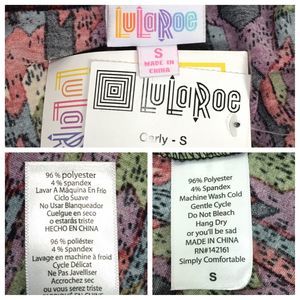 LuLaRoe
S
MADE IN
CHINA
LULAROE
Carly - S
96 % polyester
4 % spandex
Lavar A Máquina En Frío
Ciclo Suave
No Usar Blanqueador
Cuelgue en seco
o estarás triste
HECHO EN CHINA
96 % poliéster
4 % spandex
Lavage en machine à froid
Cycle Délicat
Ne Pas Javelliser
Accrochez sec
ou vous serez triste
CHINOIS
96% Polyester
4% Spandex
Machine Wash Cold
Gentle Cycle
Do Not Bleach
Hang Dry
or you'll be sad
MADE IN CHINA
RN#142161
Simply Comfortable
S